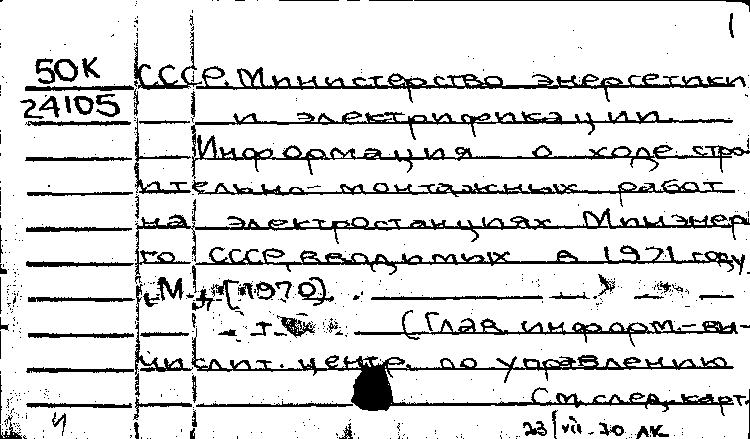 1
50К СССР. Министерство энергетики
24105 и электрификации.
Информация о ходе стро-
ительно-монтажных работ
на электростанциях Минэнер-
го СССР, вводимых в 1971 году.
М., [1970].
- т. (Глав. информ.-вы-
числит. центр. по управлению
См. след. карт.
И 23/VII-70 ЛК